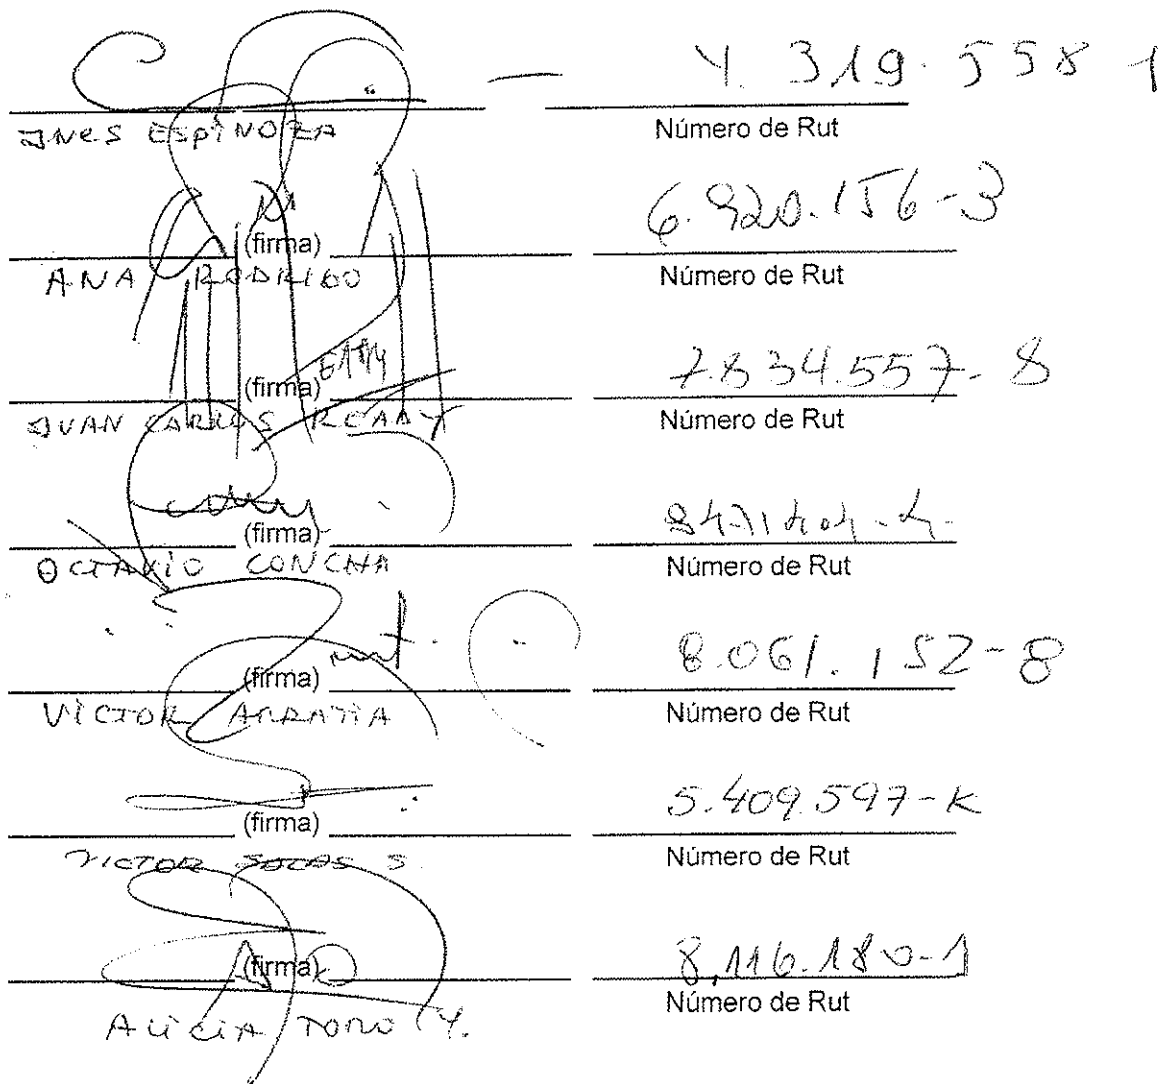 4.319.558 1
INES ESPINOZA Número de Rut
6.920.156-3
(firma)
ANA RODRIGO Número de Rut
7.834.557-8
(firma)
JUAN CARLOS READY Número de Rut
(firma)
OCTAVIO CONCHA Número de Rut
8.061.152-8
(firma)
VICTOR ARRATIA Número de Rut
5.409.597-K
(firma)
VICTOR S. Número de Rut
8.116.180-1
(firma)
ALICIA TORO Y. Número de Rut